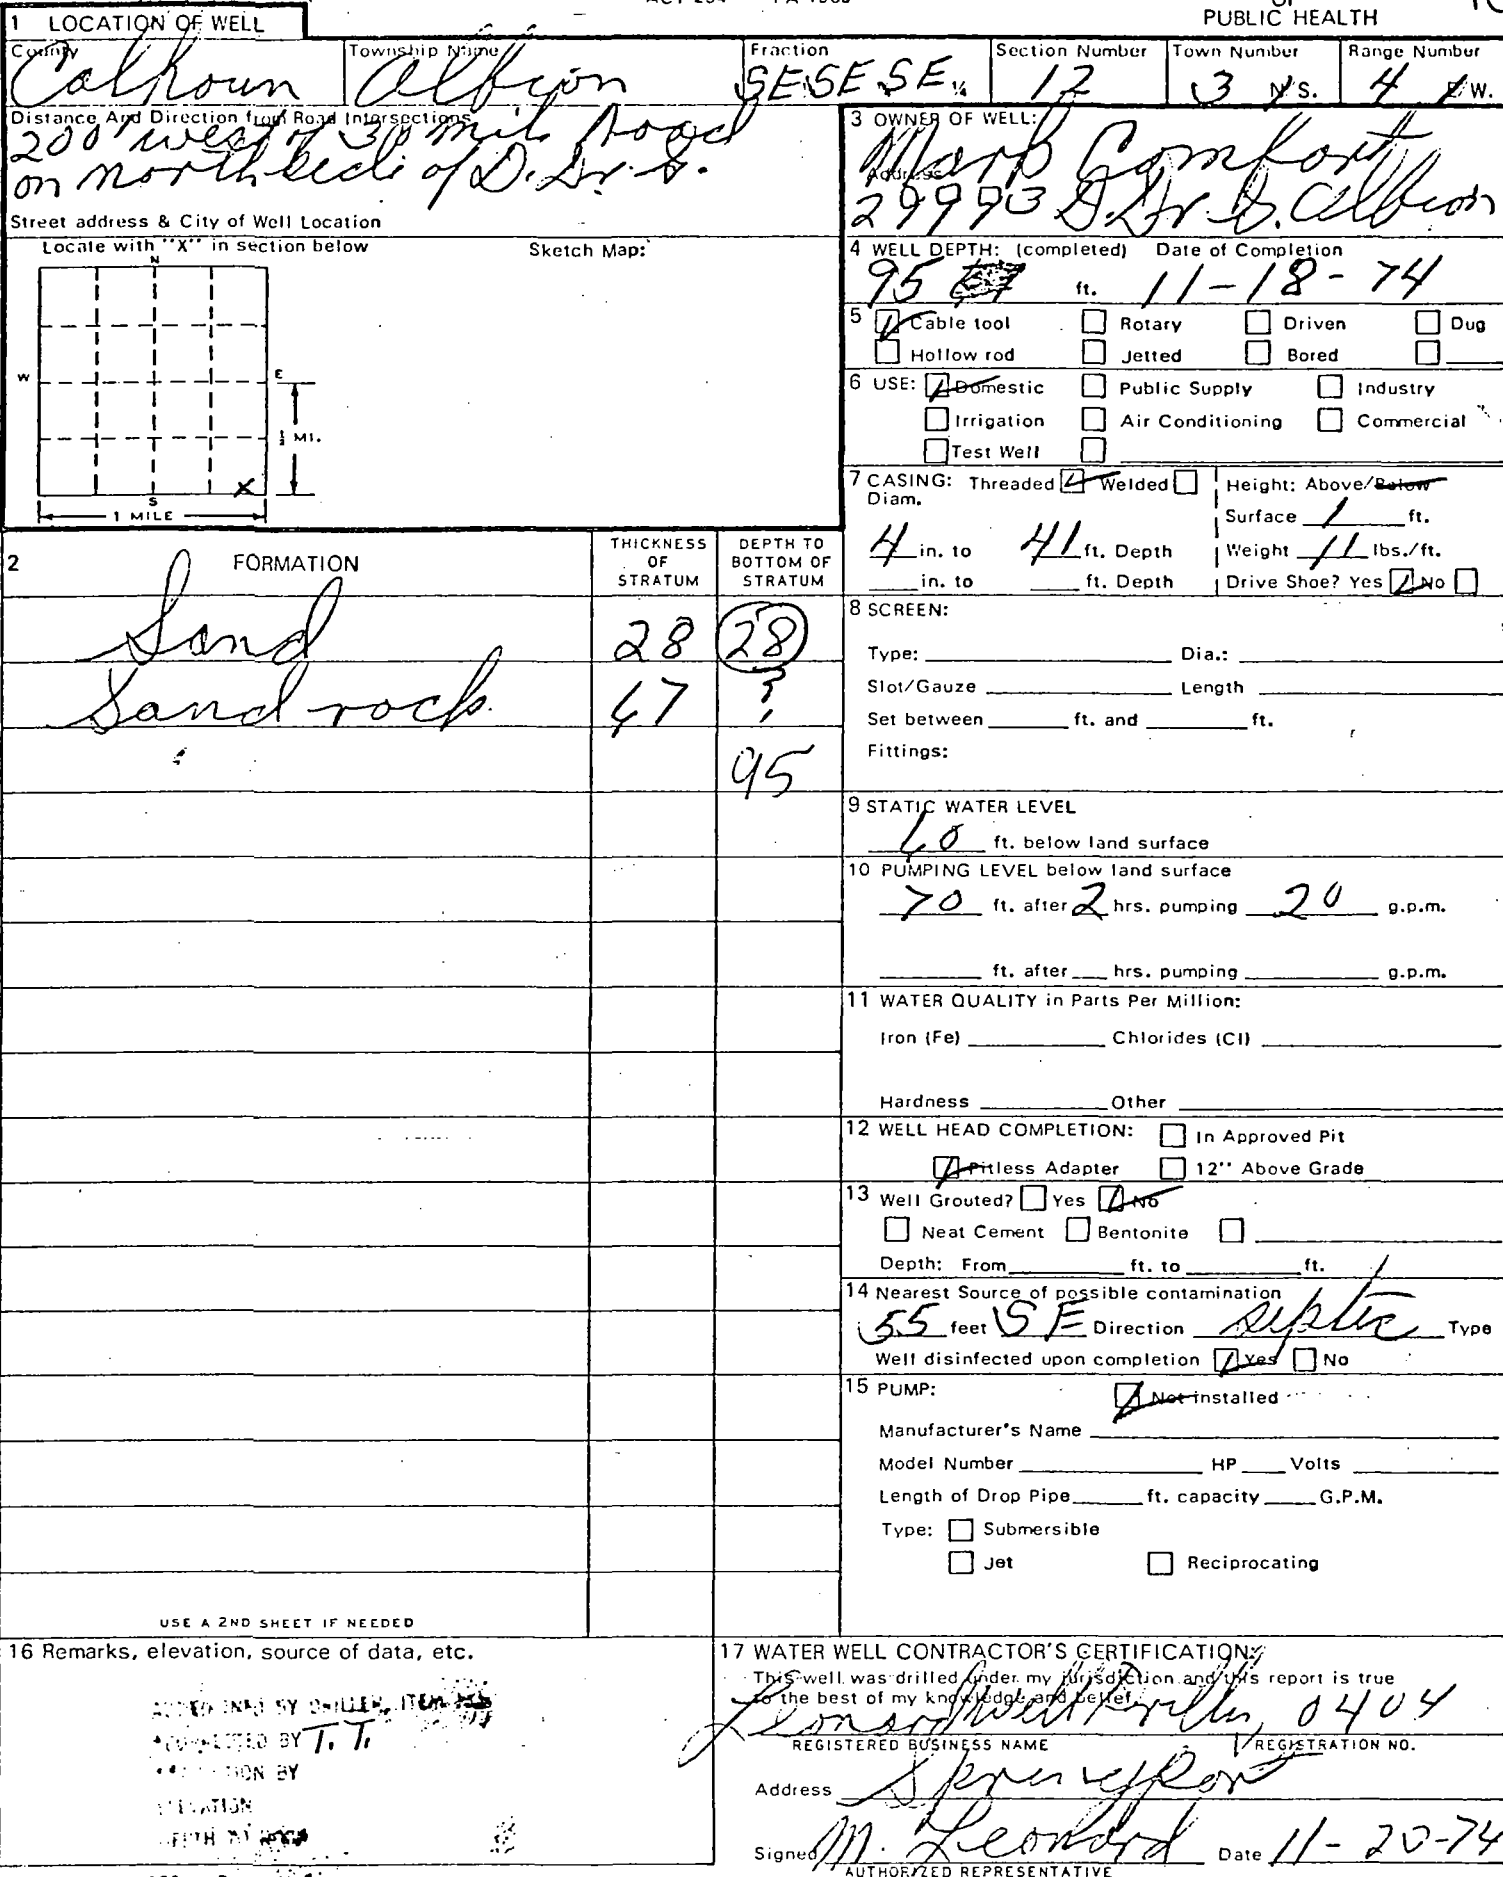 1 LOCATION OF WELL
PUBLIC HEALTH
County Calhoun
Township Name Albion
Fraction SE SE SE ¼
Section Number 12
Town Number 3 N/S.
Range Number 4 E/W.
Distance And Direction from Road Intersections
200' west of 30 mile Road
on north side of D. Dr. S.
Street address & City of Well Location
Locate with "X" in section below
Sketch Map:
N
W
E
S
X
½ MI.
1 MILE
2 FORMATION
THICKNESS OF STRATUM
DEPTH TO BOTTOM OF STRATUM
Sand 28 28
Sand rock 67 ?
95
USE A 2ND SHEET IF NEEDED
3 OWNER OF WELL:
Mark Comfort
Address
29993 D. Dr. S. Albion
4 WELL DEPTH: (completed) Date of Completion
95 ft. 11-18-74
5 Cable tool Rotary Driven Dug
Hollow rod Jetted Bored
6 USE: Domestic Public Supply Industry
Irrigation Air Conditioning Commercial
Test Well
7 CASING: Threaded Welded
Height: Above/Below
Diam.
Surface 1 ft.
4 in. to 41 ft. Depth
Weight 11 lbs./ft.
in. to ft. Depth
Drive Shoe? Yes No
8 SCREEN:
Type: Dia.:
Slot/Gauze Length
Set between ft. and ft.
Fittings:
9 STATIC WATER LEVEL
60 ft. below land surface
10 PUMPING LEVEL below land surface
70 ft. after 2 hrs. pumping 20 g.p.m.
ft. after hrs. pumping g.p.m.
11 WATER QUALITY in Parts Per Million:
Iron (Fe) Chlorides (Cl)
Hardness Other
12 WELL HEAD COMPLETION: In Approved Pit
Pitless Adapter 12" Above Grade
13 Well Grouted? Yes No
Neat Cement Bentonite
Depth: From ft. to ft.
14 Nearest Source of possible contamination
55 feet SE Direction septic Type
Well disinfected upon completion Yes No
15 PUMP: Not installed
Manufacturer's Name
Model Number HP Volts
Length of Drop Pipe ft. capacity G.P.M.
Type: Submersible
Jet Reciprocating
16 Remarks, elevation, source of data, etc.
ADDED INFO BY DRILLER, ITEM
CORRECTED BY T.T.
BY
ELEVATION
DEPTH TO ROCK
17 WATER WELL CONTRACTOR'S CERTIFICATION:
This well was drilled under my jurisdiction and this report is true
to the best of my knowledge and belief.
Leonard Well Drilling 0404
REGISTERED BUSINESS NAME REGISTRATION NO.
Address Springport
Signed M. Leonard Date 11-20-74
AUTHORIZED REPRESENTATIVE